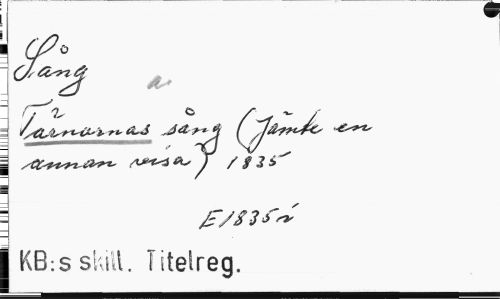 Sång
a
Tärnornas sång (Jämte en
annan visa) 1835
E1835i
KB:s skill. Titelreg.